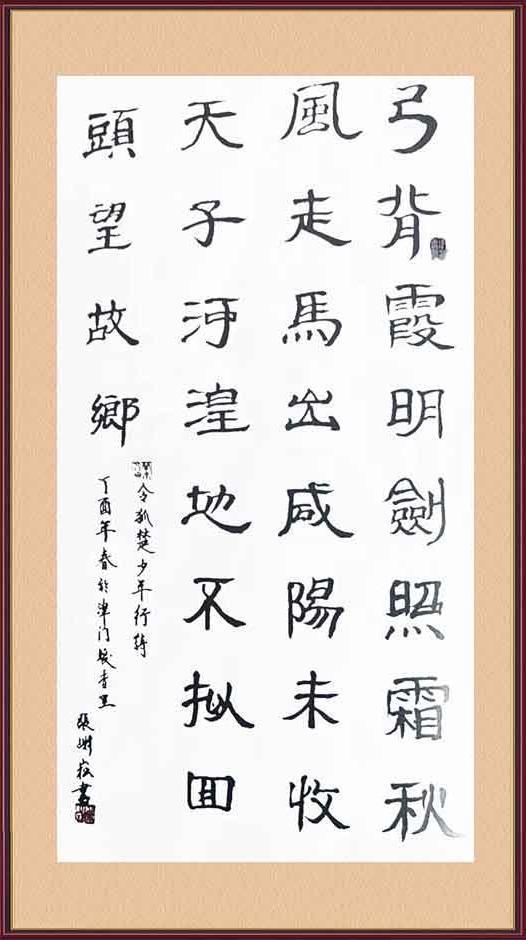 弓背霞明劍照霜秋
風走馬出咸陽未收
天子河湟地不拟囬
頭望故鄉
令狐楚少年行詩
丁酉年春於津门
張書